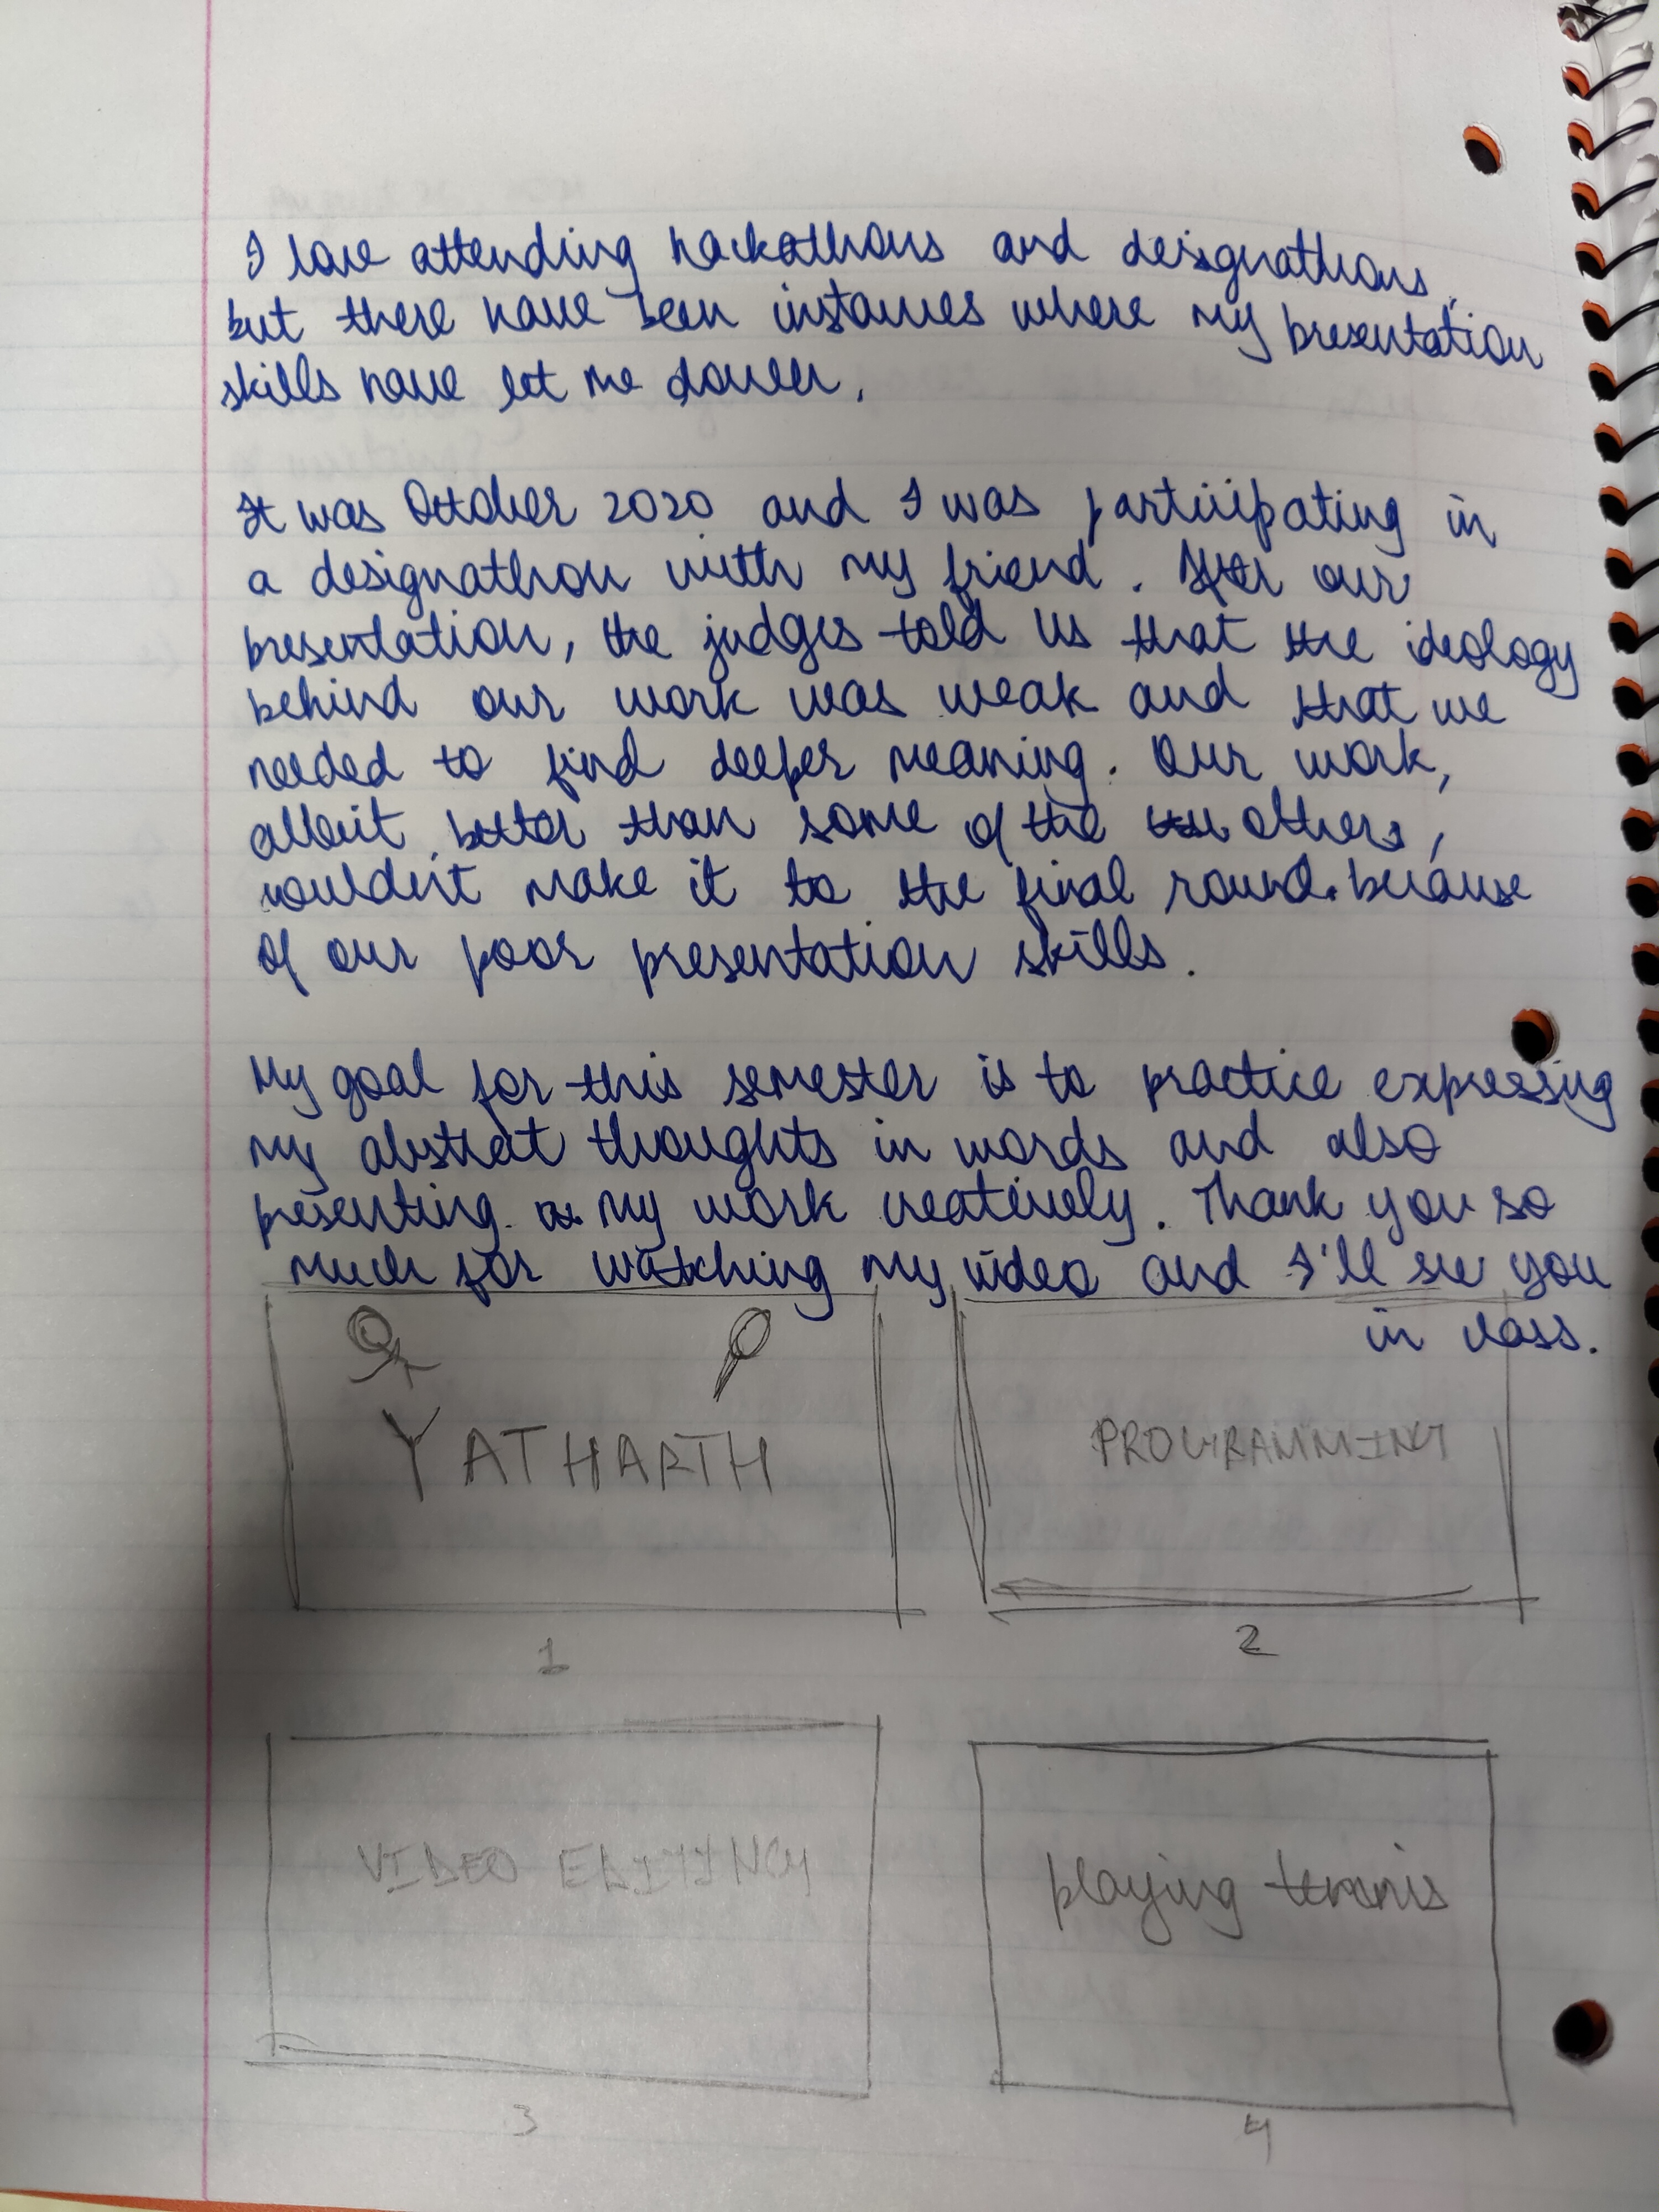 I love attending hackathons and designathons,
but there have been instances where my presentation
skills have let me down.
It was October 2020 and I was participating in
a designathon with my friend. After our
presentation, the judges told us that the ideology
behind our work was weak and that we
needed to find deeper meaning. Our work,
albeit better than some of the others,
couldn't make it to the final round. because
of our poor presentation skills.
My goal for this semester is to practice expressing
my abstract thoughts in words and also
presenting my work creatively. Thank you so
much for watching my video and I'll see you
in class.
YATHARTH
PROGRAMMING
1
2
VIDEO EDITING
playing tennis
3
4